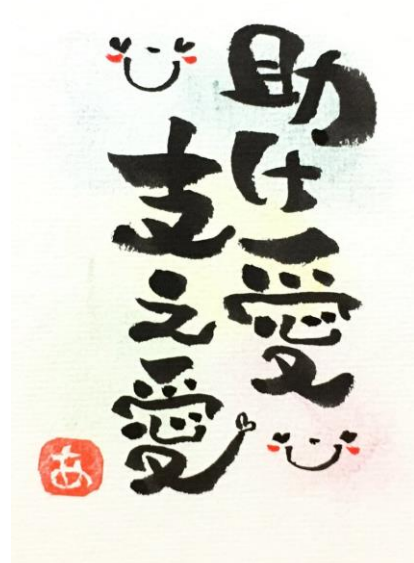 助け愛
支え愛
あ